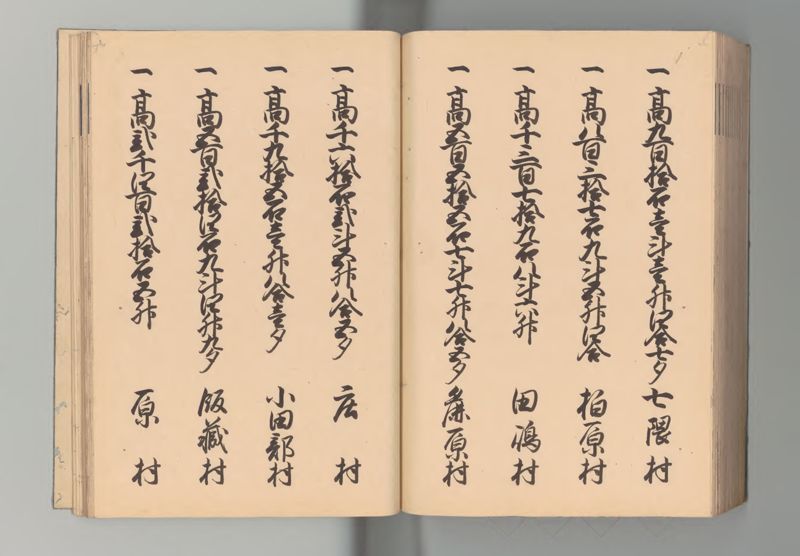 一高九百拾石壱斗壱升四合七夕 七隈村
一高八百三拾七石九斗五升四合 柏原村
一高千三百七拾九石八斗六升 田嶋村
一高五百五拾五石七斗七升八合五夕 原村
一高千六拾石弐斗五升八合五夕 庄村
一高千九拾五石壱升八合壱夕 小田部村
一高五百弐拾四石九斗四升九夕 飯蔵村
一高弐千四百弐拾石五升 原村